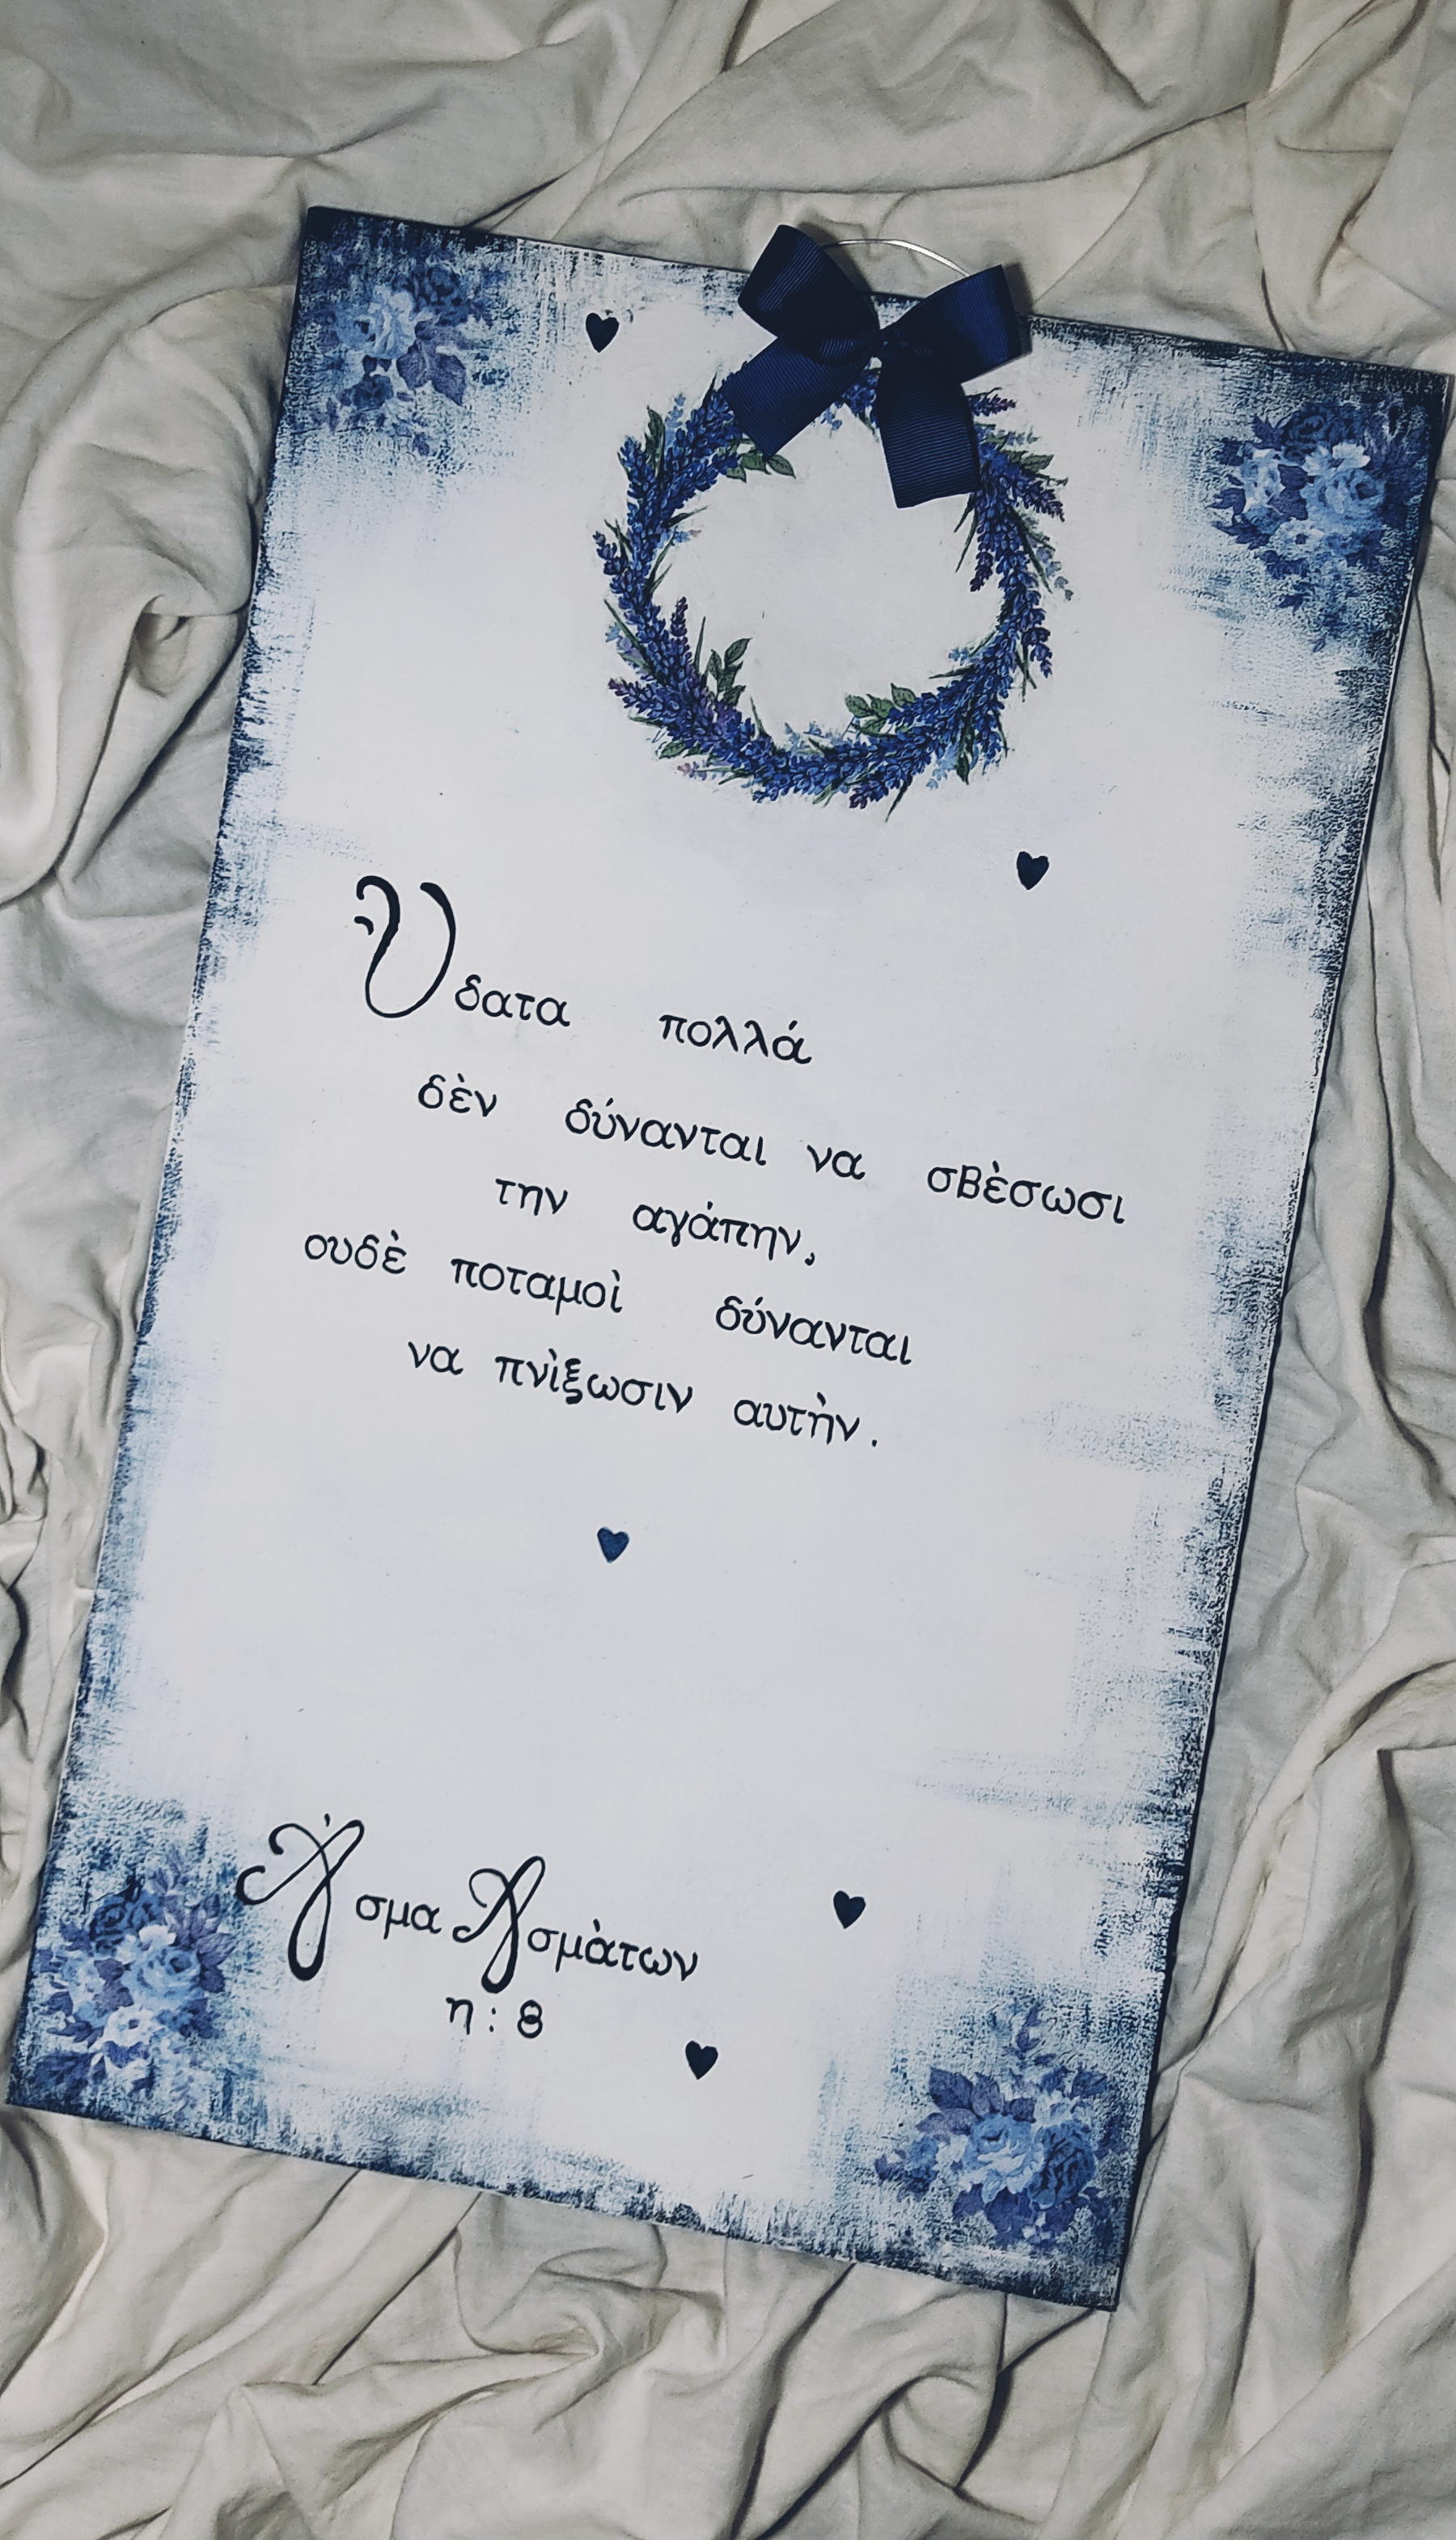 Ὕδατα πολλά
δὲν δύνανται να σβὲσωσι
την αγάπην,
ουδὲ ποταμοὶ δύνανται
να πνὶξωσιν αυτὴν.
Ἀσμα Ασμὰτων
η : 8